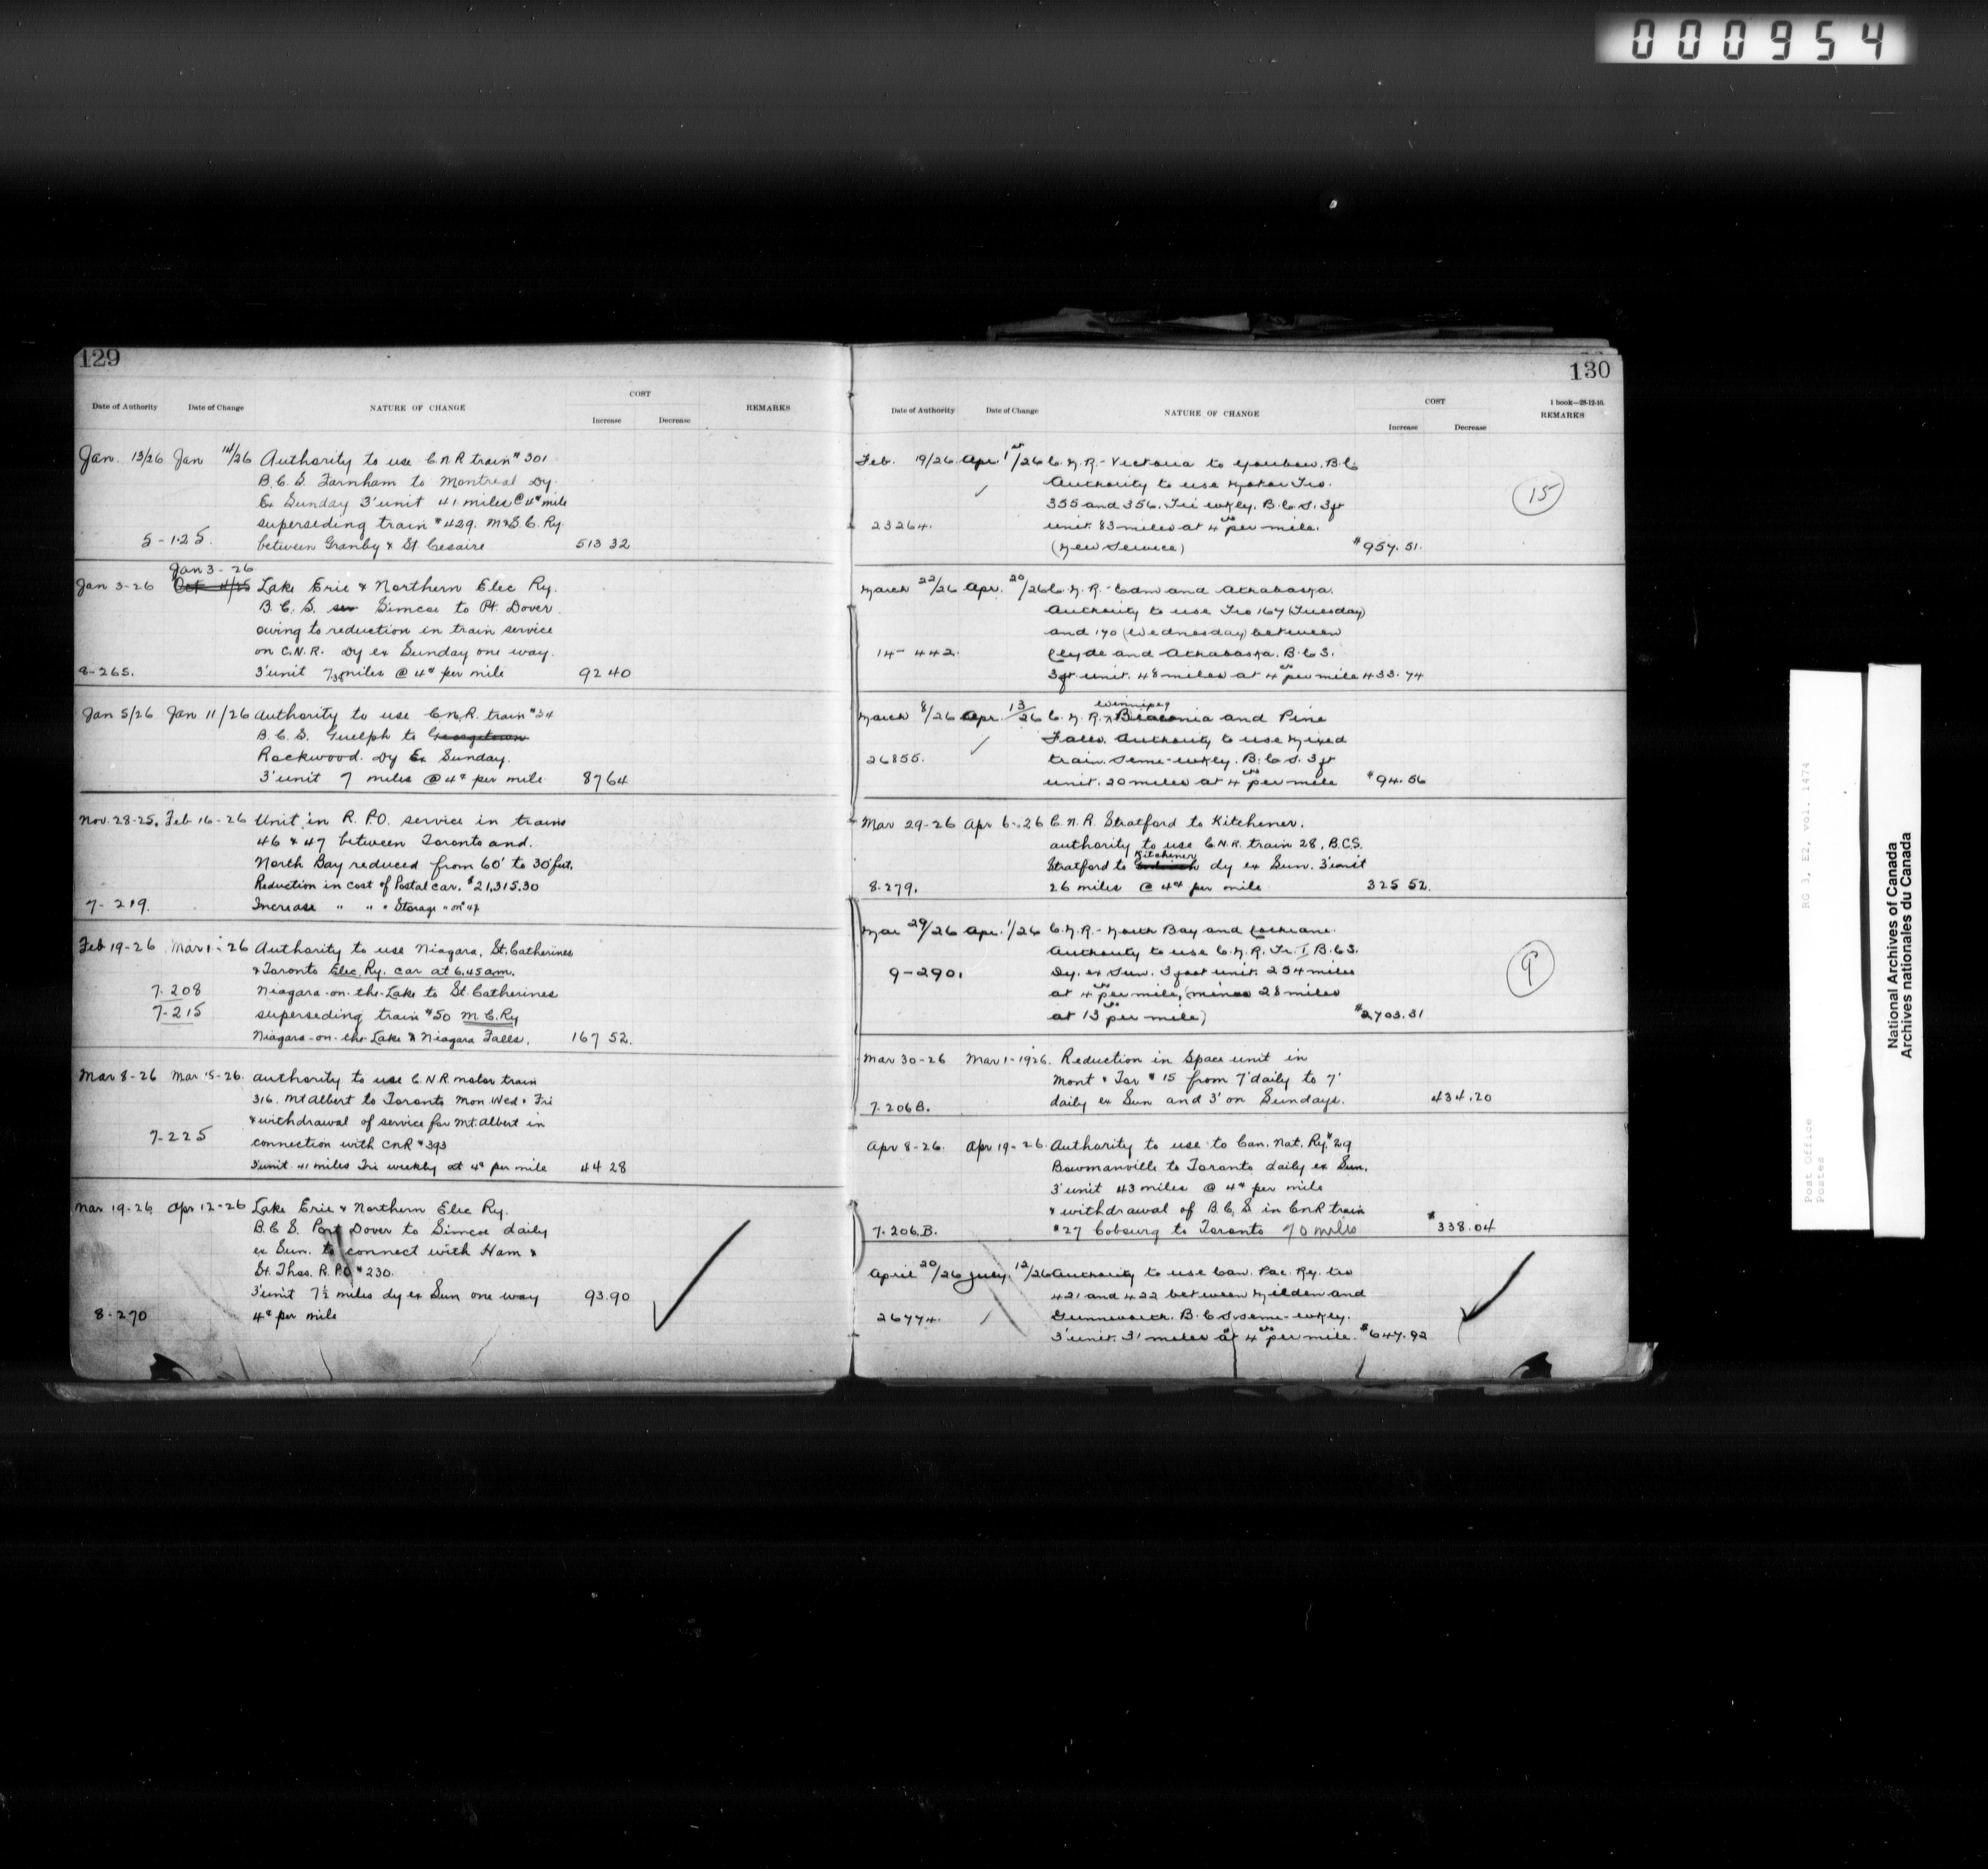 000954
129
Date of Authority Date of Change NATURE OF CHANGE COST Increase Decrease REMARKS
Jan. 13/26 Jan 14/26 Authority to use C.N.R train # 301
B.C.S. Farnham to Montreal Dy.
Ex Sunday 3' unit 41 miles @ 4¢ mile
superseding train # 429. M&S.C. Ry.
5-125. between Granby & St. Cesaire 513 32
Jan 3-26
Jan 3-26 Oct 11/25 Lake Erie & Northern Elec Ry.
B.C.S. Simcoe to Pt. Dover.
owing to reduction in train service
on C.N.R. Dy ex Sunday one way.
8-265. 3' unit 7.38 miles @ 4¢ per mile 92 40
Jan 5/26 Jan 11/26 Authority to use C.N.R. train # 34
B.C.S. Guelph to Georgetown
Rockwood. Dy Ex Sunday.
3' unit 7 miles @ 4¢ per mile 87 64
Nov. 28-25. Feb 16-26 Unit in R.P.O. service in trains
46 & 47 between Toronto and
North Bay reduced from 60' to 30 feet.
Reduction in cost of Postal car. $21,315.30
7-219. Increase " " " Storage " on 47
Feb 19-26 Mar 1-26 Authority to use Niagara, St. Catherines
& Toronto Elec. Ry. car at 6.45 am.
7.208 Niagara-on-the-Lake to St. Catherines
7-215 superseding train #50 M.C. Ry
Niagara-on-the-Lake & Niagara Falls. 167 52.
Mar 8-26 Mar 15-26. authority to use C.N.R motor train
316. Mt Albert to Toronto Mon. Wed & Fri
& withdrawal of service for Mt. Albert in
7-225 connection with CNR # 393
3' unit 41 miles Tri weekly at 4¢ per mile 44 28
Mar 19-26 Apr 12-26 Lake Erie & Northern Elec Ry.
B.C.S. Port Dover to Simcoe daily
ex Sun. to connect with Ham &
St. Thos. R.P.O # 230.
3' unit 7½ miles dy ex Sun one way 93.90
8-270 4¢ per mile
130
1 book—28-12-10.
Date of Authority Date of Change NATURE OF CHANGE COST Increase Decrease REMARKS
Feb. 19/26 Apr. 1st/26 C.N.R.- Victoria to Youbou. B.C.
Authority to use Motor Trs.
355 and 356. Tri wkly. B.C.S. 3 ft
23264. unit. 83 miles at 4 cts per mile.
(New Service) $957.51.
15
March 22/26 Apr. 20/26 C.N.R.- Edm and Athabaska.
Authority to use Trs 167 (Tuesday)
and 170 (Wednesday) between
14-442. Clyde and Athabaska. B.C.S.
3 ft. unit. 48 miles at 4 cts per mile 433.74
Winnipeg
March 8/26 Apr. 13/26 C.N.R. Beaconia and Pine
Falls. Authority to use Mixed
26855. train. Semi-wkly. B.C.S. 3 ft
unit. 20 miles at 4 cts per mile $94.56
Mar 29-26 Apr 6-26 C.N.R. Stratford to Kitchener.
authority to use C.N.R. train 28, B.C.S.
Kitchener
Stratford to dy ex Sun. 3' unit
8.279. 26 miles @ 4¢ per mile 325 52.
Mar 29/26 Apr. 1/26 C.N.R.- North Bay and Cochrane.
Authority to use C.N.R. Tr. 1 B.C.S.
9-290. Dy. ex Sun. 3 foot unit. 254 miles
at 4 cts per mile, (minus 28 miles
at 13 cts per mile) $2703.31
9
Mar 30-26 Mar 1-1926. Reduction in Space unit in
Mont & Tor # 15 from 7' daily to 7'
7.206B. daily ex Sun and 3' on Sundays. 434.20
Apr 8-26. Apr 19-26. Authority to use to Can. Nat. Ry. # 29
Bowmanville to Toronto daily ex Sun.
3' unit 43 miles @ 4¢ per mile
& withdrawal of B.C.S in CNR train
7.206.B. # 27 Cobourg to Toronto 70 miles $338.04
April 20/26 July. 12/26 Authority to use Can. Pac. Ry. trs
421 and 422 between Milden and
26774. Gunnworth. B.C.S. semi-wkly.
3' unit. 31 miles at 4 cts per mile. $647.92
RG 3, E2, vol. 1474
Post Office
Postes
National Archives of Canada
Archives nationales du Canada